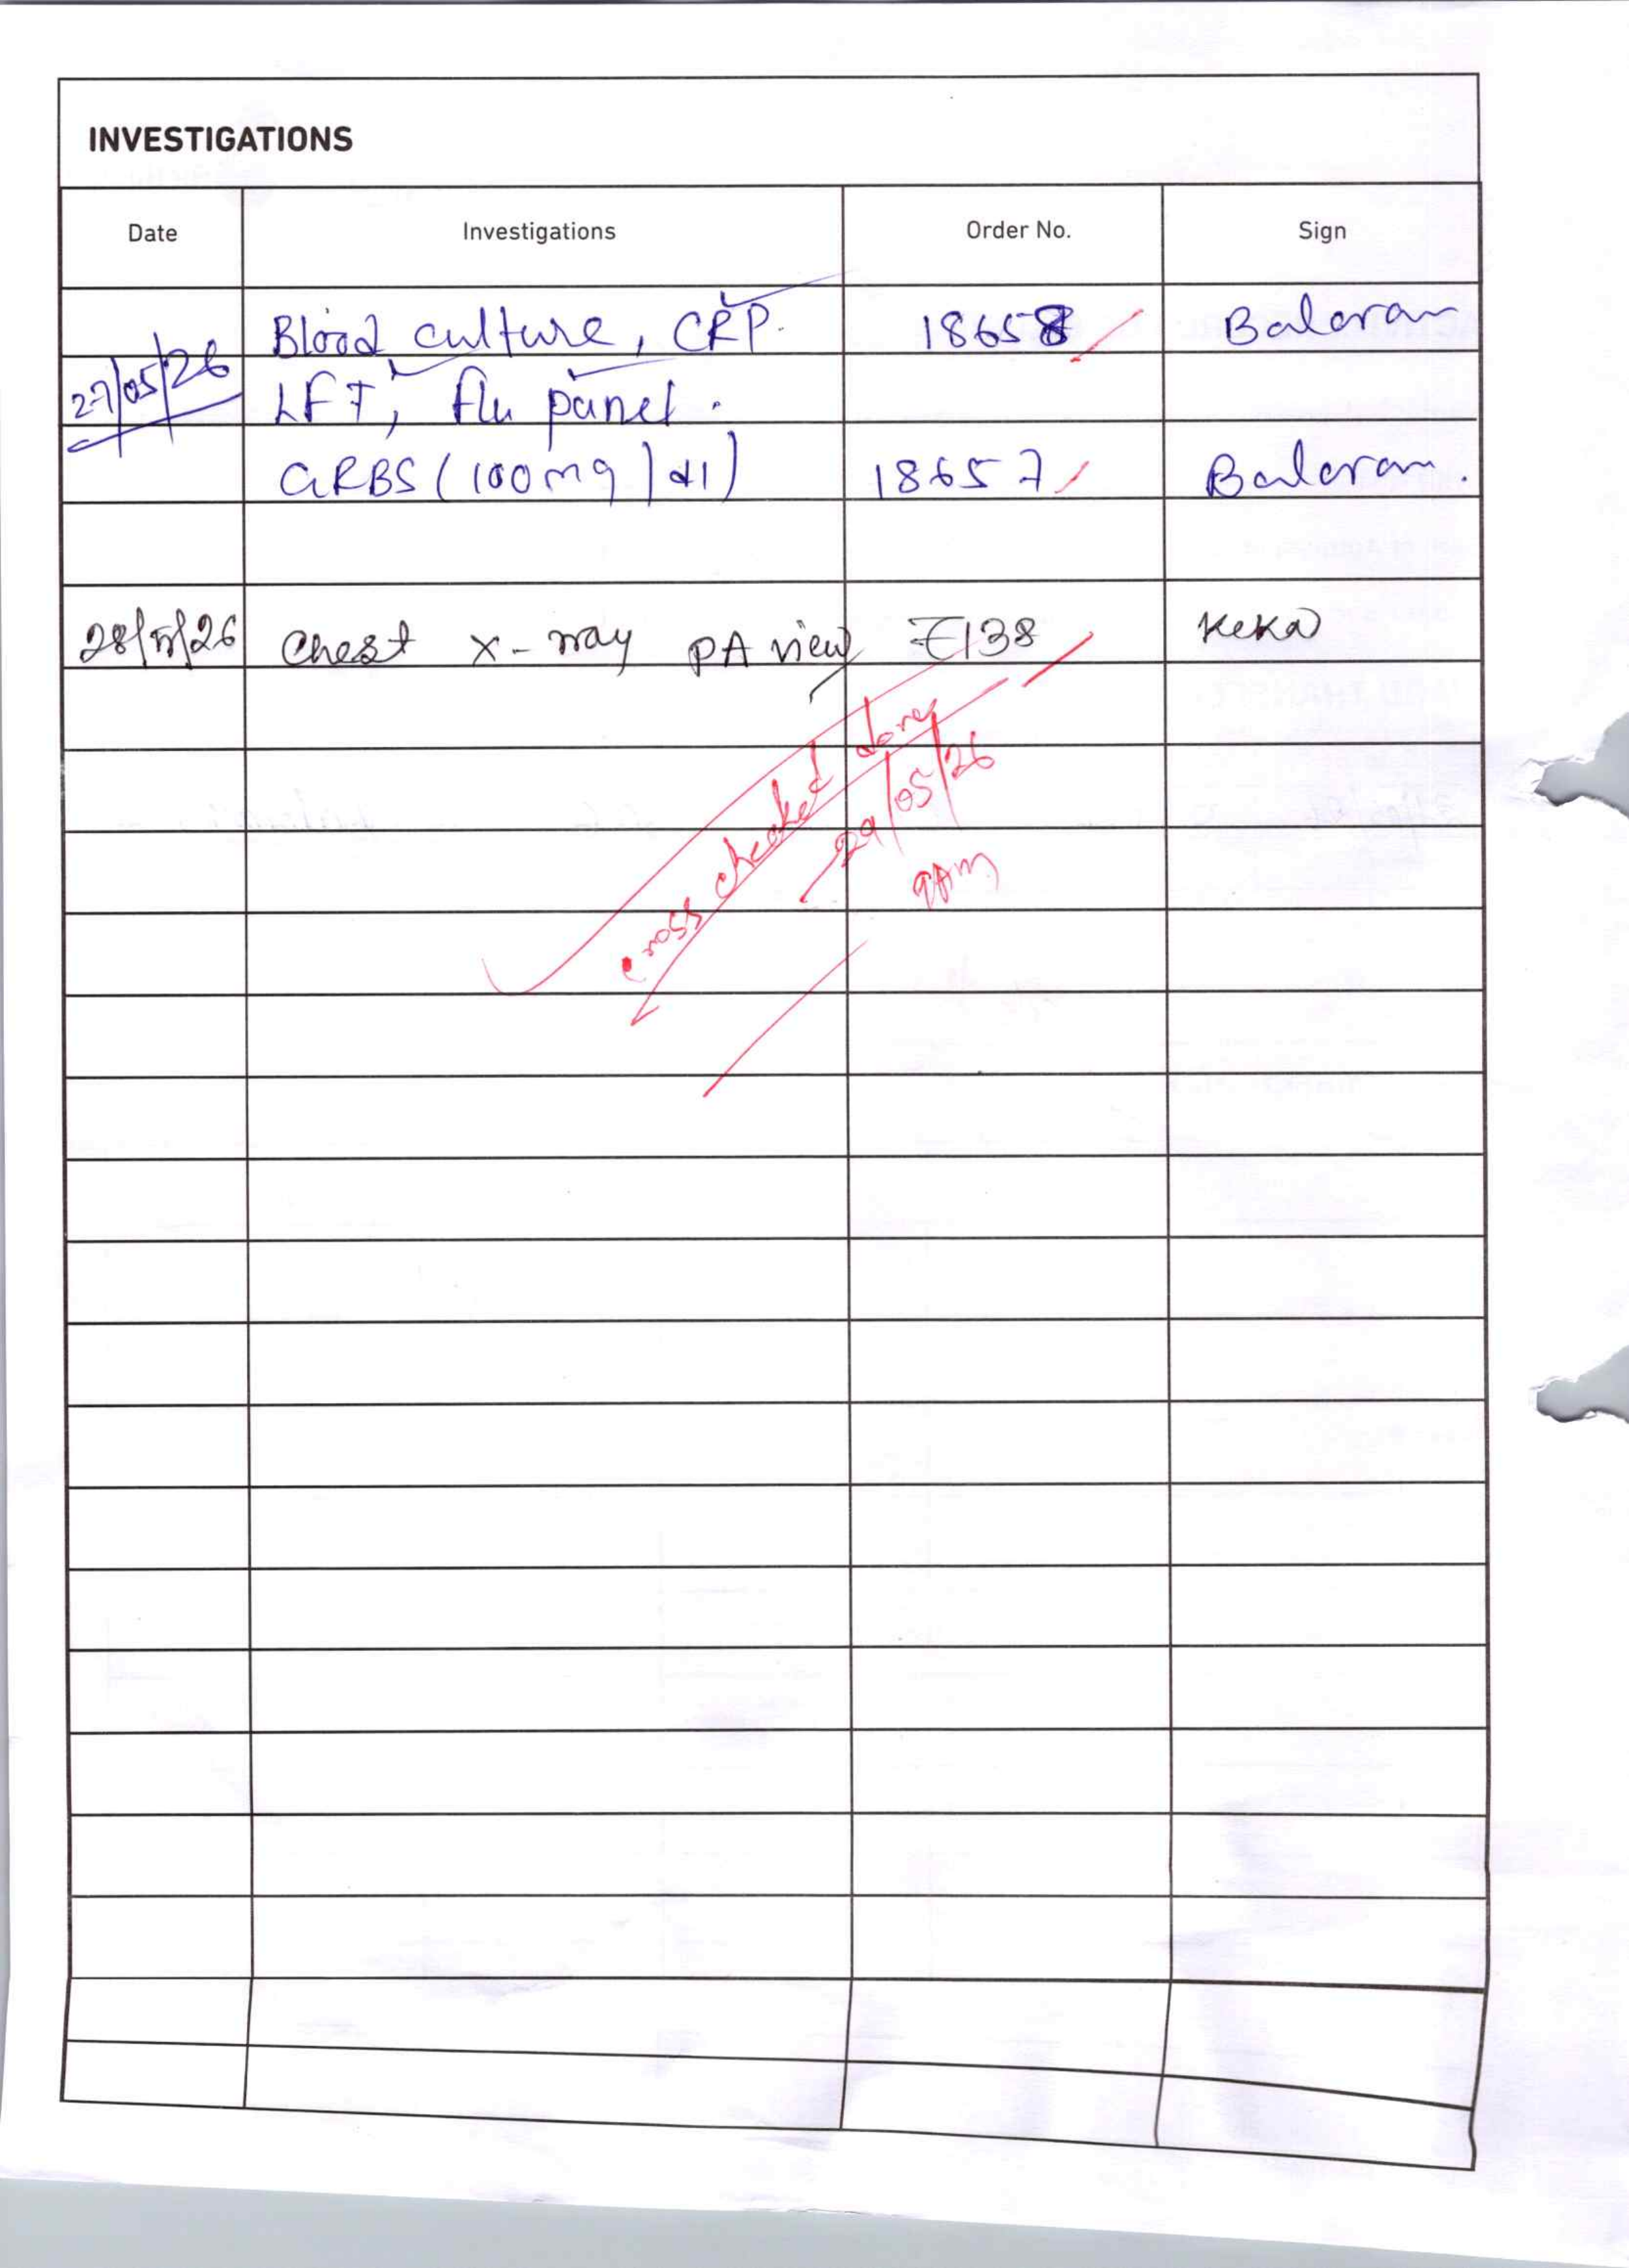 INVESTIGATIONS
Date Investigations Order No. Sign
27/05/26 Blood culture, CRP. 18658 Balaram
LFT, flu panel.
GRBS (100mg/dl) 18657 Balaram.
28/5/26 Chest x-ray PA view 138 Keka
cross checked done
29/05/26
9AM